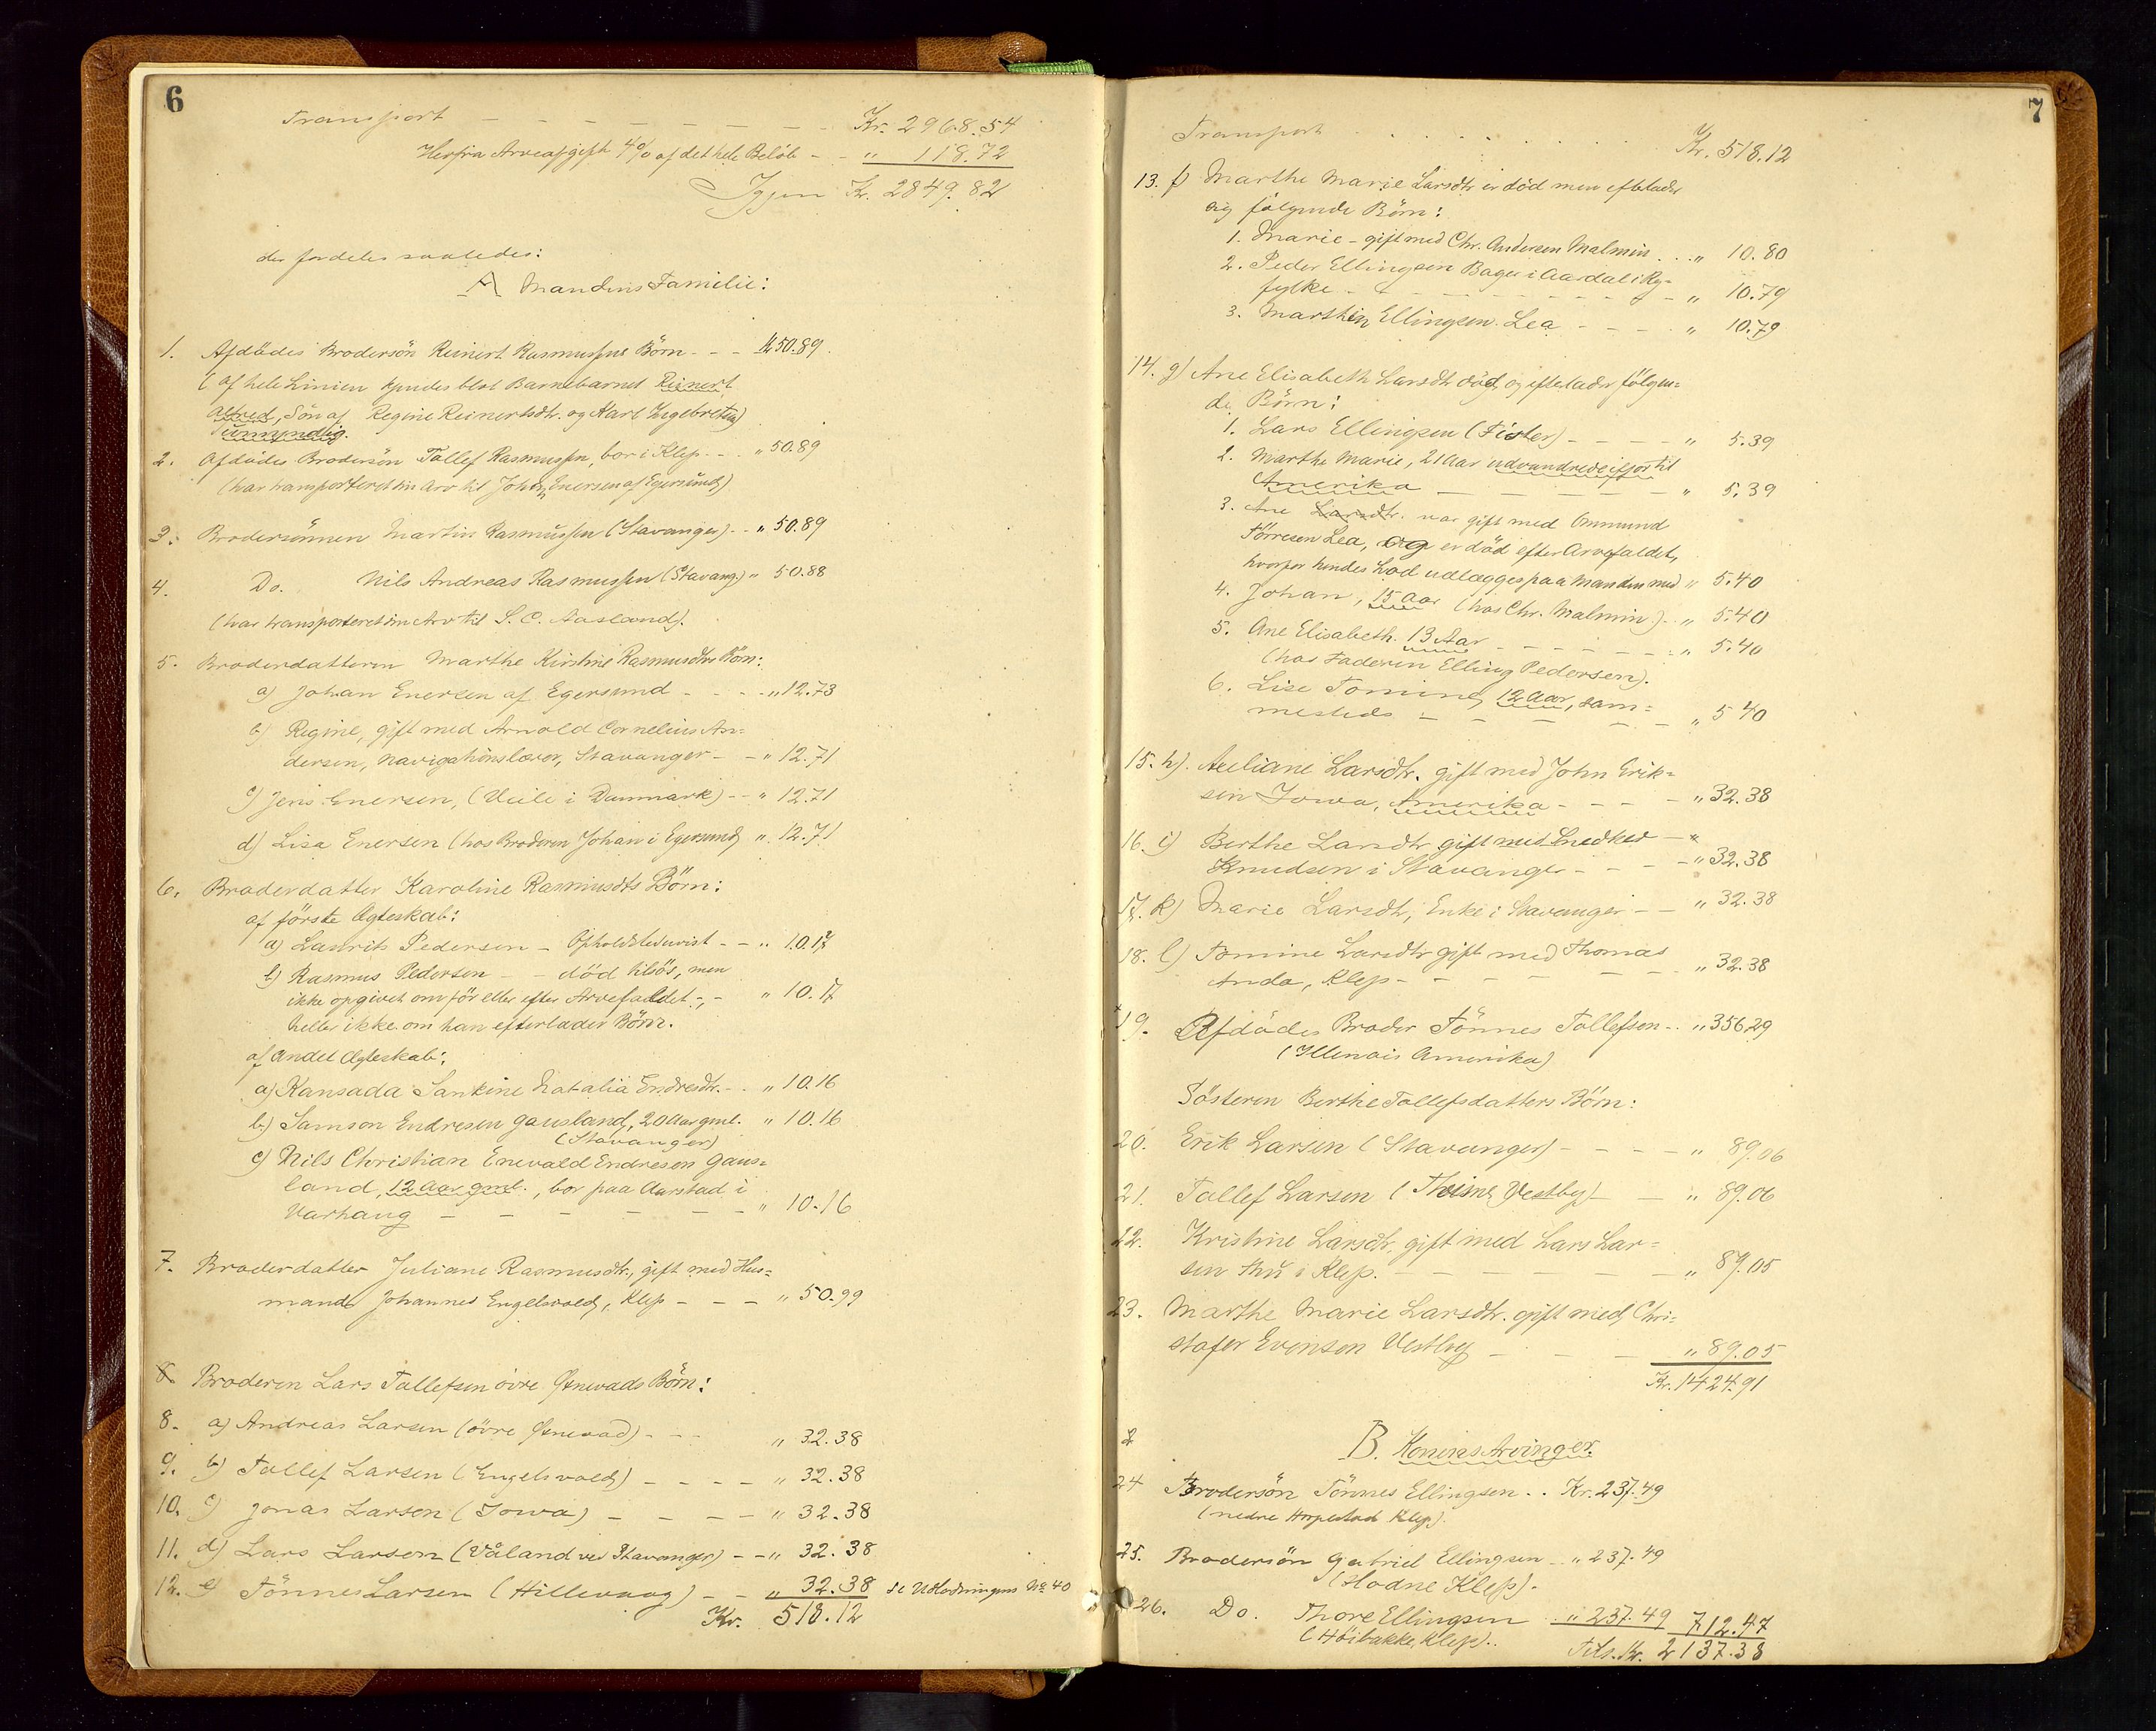 6
Transport - - - - - - - - Kr. 2968.54
Herfra Arveafgift 4% af det hele Beløb - - " 118.72
Igjen Kr. 2849.82
der fordeles saaledes:
A Mandens Familie:
1. Afdødes Brodersön Reinert Rasmussens Börn - - - Kr 50.89.
(af hele Linien kjendes blot Barnebarnet Reinert
Alfred, Sön af Regine Reinertsdtr. og Karl Ingebretsen)
umyndig.
2. Afdødes Brodersön Tollef Rasmussen, bor i Klep. - - " 50.89
(har transporteret sin Arv til Johan Enersen af Egersund)
3. Brodersönnen Martin Rasmussen (Stavanger) - - " 50.89
4. Do. Nils Andreas Rasmussen (Stavang.) " 50.88
(har transporteret sin Arv til S. C. Aasland).
5. Broderdatteren Marthe Kirstine Rasmusdtrs Börn:
a) Johan Enersen af Egersund - - - - " 12.73
b) Regine, gift med Arnold Cornelius An=
dersen, Navigationslærer, Stavanger - - " 12.71
c) Jens Enersen, (Veile i Danmark) - - " 12.71
d) Lisa Enersen (hos Broderen Johan i Egersund) " 12.71
6. Broderdatter Karoline Rasmusdts Börn:
af förste Ægteskab:
a) Laurits Pedersen - Opholdsted uvist - - " 10.17
b) Rasmus Pedersen - - död tilsös, men
ikke opgivet om før eller efter Arvefaldet -,- " 10.17
heller ikke om han efterlader Börn.
af andet Ægteskab:
a) Kansada Sankine Natalia Endresdtr. - . " 10.16
b.) Samson Endresen Gausland, 20 Aar gml. " 10.16
(Stavanger)
c) Nils Christian Enevald Endresen Gaus=
land, 12 Aar gml., bor paa Aarstad i
Varhaug - - - - - - - " 10.16
7. Broderdatter Juliane Rasmusdtr., gift med Hus=
mand Johannes Engelsvold, Klep - - - " 50.99
8. Broderen Lars Tollefsen övre Öxnevads Börn:
8. a) Andreas Larsen (övre Öxnevad) - - - " 32.38
9. b) Tollef Larsen (Engelsvold) - - - - " 32.38
10. c) Jonas Larsen (Iowa) - - - - " 32.38
11. d) Lars Larsen (Våland ved Stavanger) - - " 32.38
12. e) Tönnes Larsen (Hillevaag) - - " 32.38 se Udlodningens No 40
Kr. 518.12
7
Transport . . . . . . Kr. 518.12
13. f) Marthe Marie Larsdtr er död men efterlader
sig følgende Börn:
1. Marie - gift med Chr. Andersen Malmin . . . " 10.80
2. Peder Ellingsen Bager i Aardal i Ry=
fylke - - - - - - - - - " 10.79
3. Marthin Ellingsen Lea - - - - " 10.79
14. g) Ane Elisabeth Larsdtr död, og efterlader følgen=
de Börn:
1. Lars Ellingsen (Fister) - - - - " 5.39
2. Marthe Marie, 21 Aar udvandrede ifjor til
Amerika - - - - - - " 5.39
3. Ane Larsdtr. var gift med Ommund
Törresen Lea, og er död efter Arvefaldet,
hvorfor hendes Lod udlægges paa Manden med " 5.40
4. Johan, 15 Aar (hos Chr. Malmin) - " 5.40
5. Ane Elisabeth. 13 Aar - - - - - " 5.40
(hos Faderen Elling Pedersen).
6. Lise Tomine, 12 Aar, sam=
mesteds - - - - - - - " 5 40
15. h). Aeeliane Larsdtr. gift med John Erik=
sen Iowa, Amerika - - - - " 32.38
16. i) Berthe Larsdtr gift med Snedker - "
Knudsen i Stavanger - - - - " 32.38
17. k) Marie Larsdtr, Enke i Stavanger - - " 32.38
18. l) Tomine Larsdtr gift med Thomas
Anda, Klep - - - - - - " 32.38
19. Afdödes Broder Tönnes Tollefsen . . " 356.29
(Illenois Amerika)
Sösteren Berthe Tollefsdatters Börn:
20. Erik Larsen (Stavanger) - - - - " 89.06
21. Tollef Larsen (Theime Vestby) - - " 89.06
22. Kristine Larsdtr, gift med Lars Lar=
sen Thu i Klep. - - - - - - " 89.05
23. Marthe Marie Larsdtr. gift med Chri=
stofer Evensen Vestby - - - " 89.05
Kr. 1424.91
B. Konens Arvinger.
24 Brodersön Tönnes Ellingsen . . Kr. 237.49
(nedre Hopestad Klep).
25. Brodersön Gabriel Ellingsen - " 237.49
(Hodne Klep).
26. Do. Thore Ellingsen . " 237.49 712.47
(Höibakke, Klep). . Tils. Kr. 2137.38